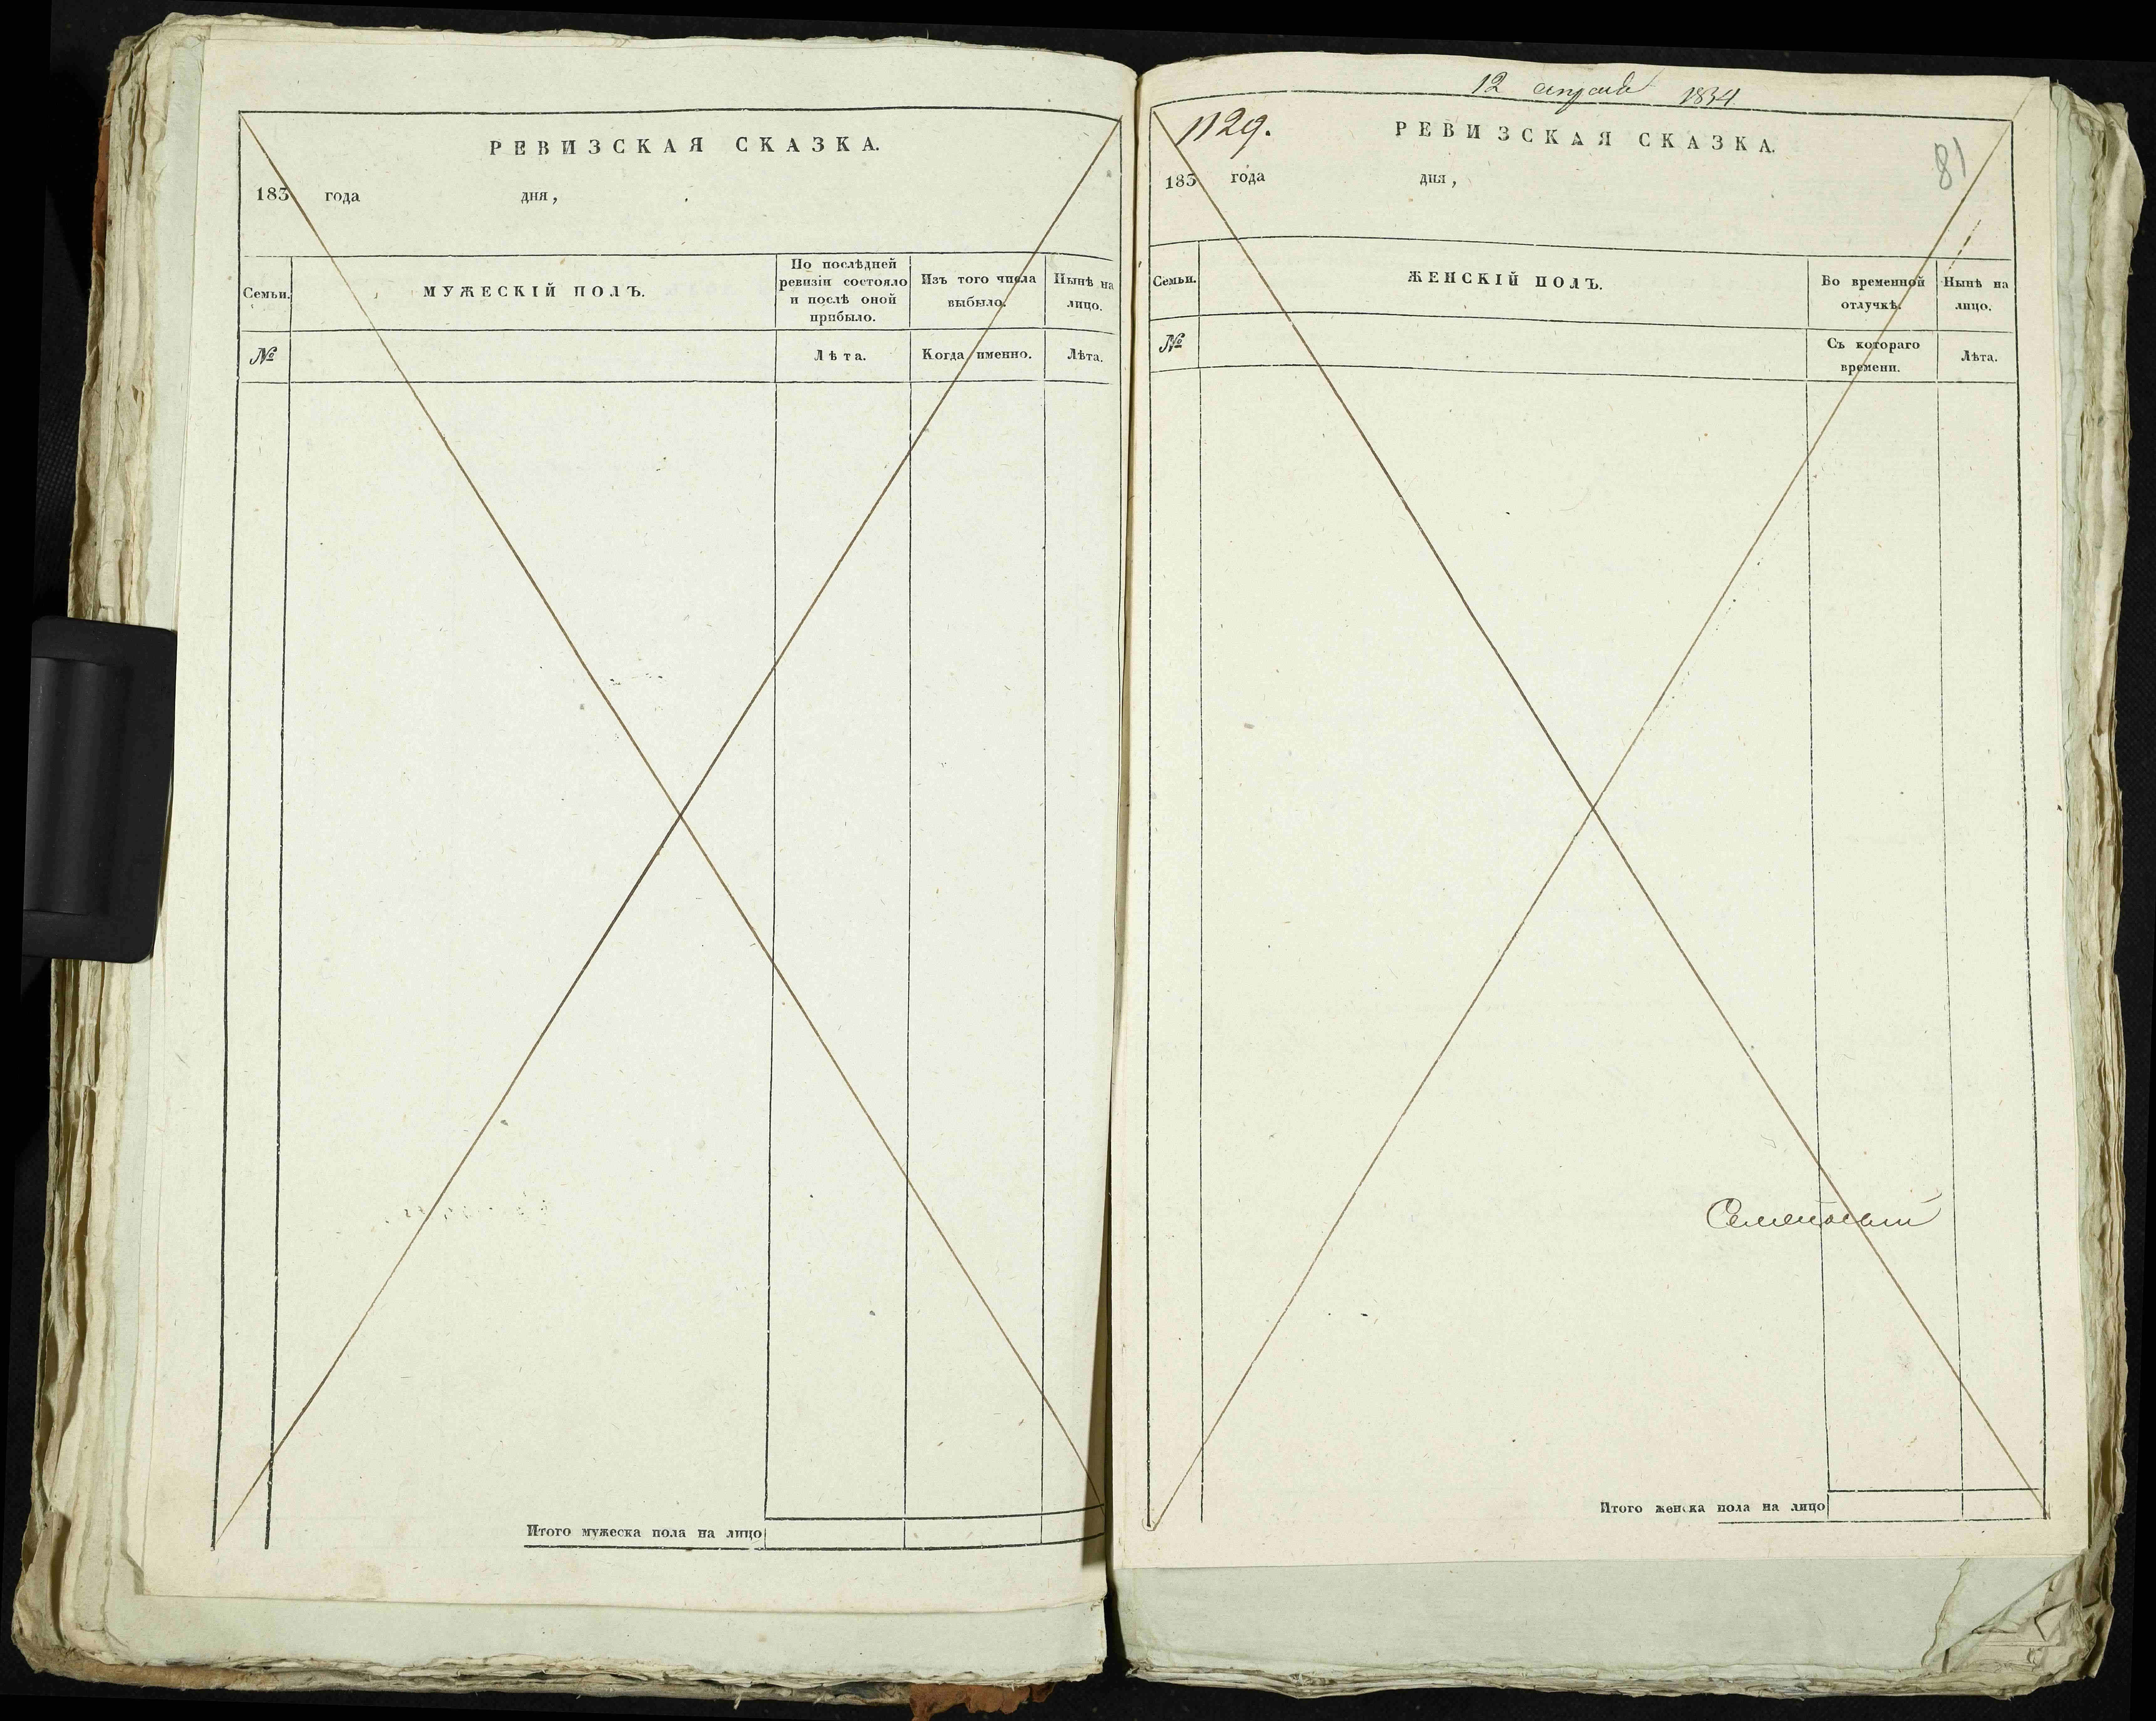 РЕВИЗСКАЯ СКАЗКА.
183 года дня,
Семьи.
МУЖЕСКІЙ ПОЛЪ.
По послѣдней
ревизіи состояло
и послѣ оной
прибыло.
Изъ того числа
выбыло.
Нынѣ на
лицо.
№
Лѣта.
Когда именно.
Лѣта.
Итого мужеска пола на лицо
12 апреля 1834
1129.
РЕВИЗСКАЯ СКАЗКА.
81
183 года дня,
Семьи.
ЖЕНСКІЙ ПОЛЪ.
Во временной
отлучкѣ.
Нынѣ на
лицо.
№
Съ котораго
времени.
Лѣта.
Итого женска пола на лицо